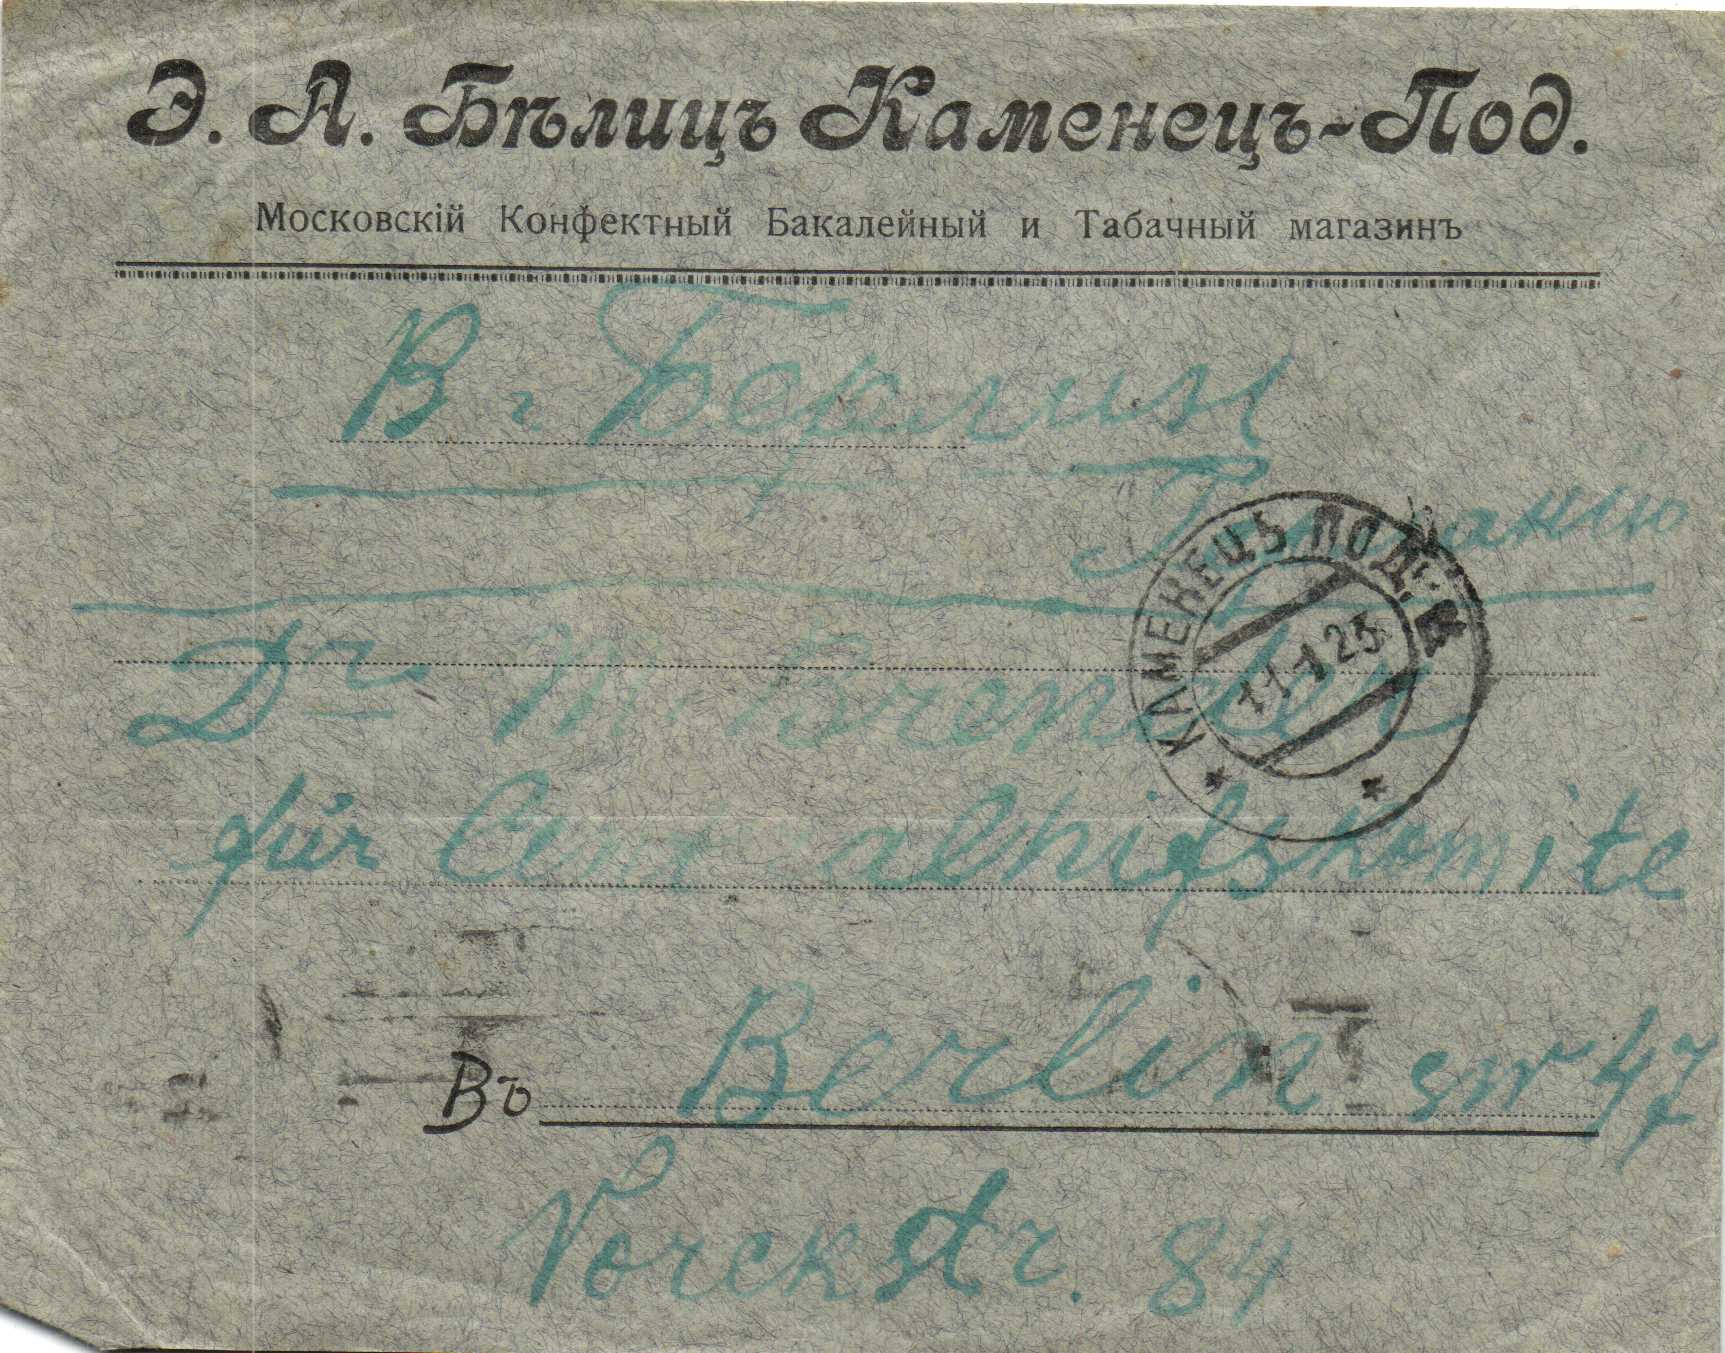 Э. А. Бѣлицъ Каменецъ-Под.
Московскій Конфектный Бакалейный и Табачный магазинъ
В г Берлин
КАМЕНЕЦЪ ПОД.
11 1 23
Dr. M.
für
Въ Berlin SW 47
Vorckstr. 84